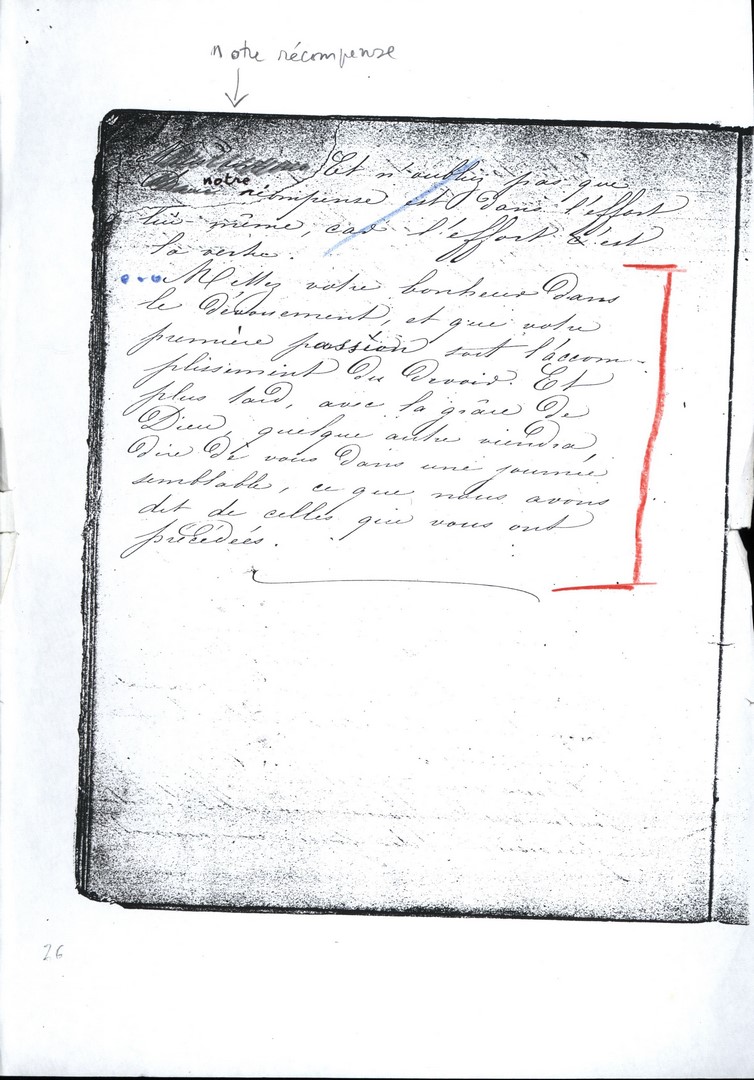 notre récompense
Et n'oubliez pas que
notre récompense est dans l'effort
lui-même, car l'effort c'est
la vertu.
... Mettez votre bonheur dans
le dévouement, et que votre
première passion soit l'accom-
plissement du devoir. Et
plus tard, avec la grâce de
Dieu, quelque autre viendra,
dire de vous dans une journée
semblable, ce que nous avons
dit de celles qui vous ont
précédées.
26